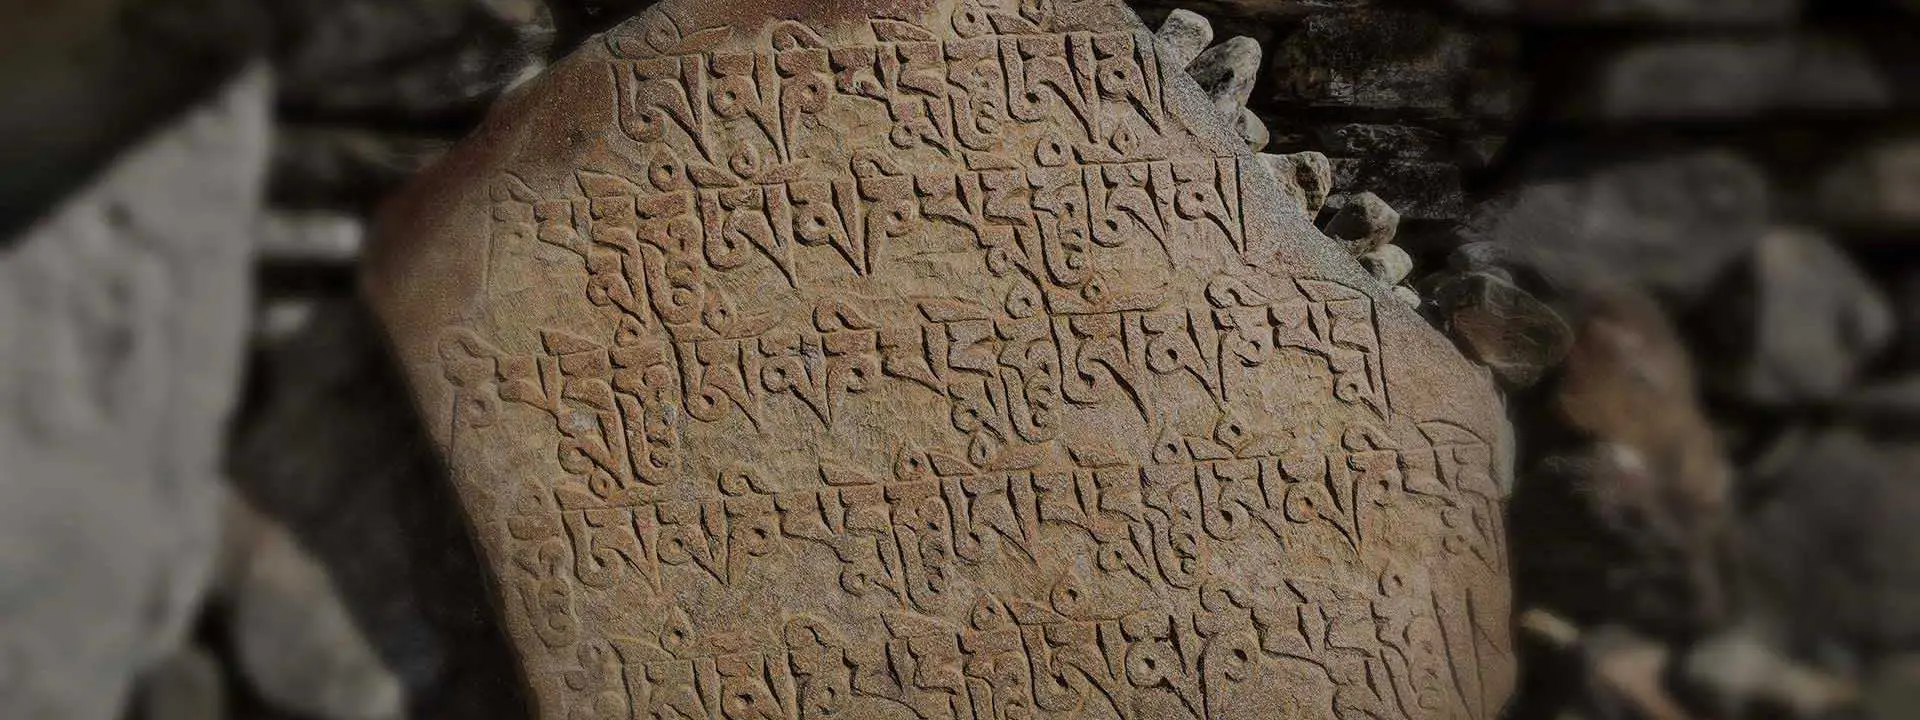 ཨོཾ་མ་ཎི་པདྨེ་ཧཱུྃ་ཨོཾ་མ
ཎི་པདྨེ་ཧཱུྃ་ཨོཾ་མ་ཎི་པདྨེ་ཧཱུྃ་ཨོཾ་མ
ཎི་པདྨེ་ཧཱུྃ་ཨོཾ་མ་ཎི་པདྨེ་ཧཱུྃ་ཨོཾ་མ་ཎི་པདྨེ
ཧཱུྃ་ཨོཾ་མ་ཎི་པདྨེ་ཧཱུྃ་ཨོཾ་པདྨེ་ཧཱུྃ་ཨོཾ་མ་ཎི་པདྨེ
ཧཱུྃ་ཨོཾ་མ་ཎི་པདྨེ་ཧཱུྃ་ཨོཾ་མ་ཎི་པདྨེ་ཧཱུྃ